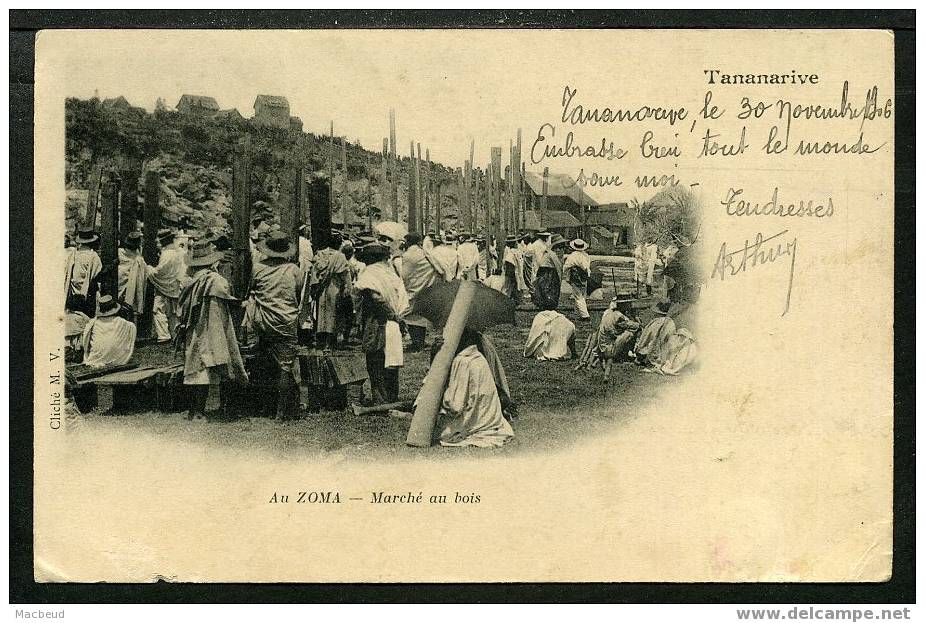 Tananarive
Tananarive, le 30 Novembre 1906
Embrasse bien tout le monde
pour moi -
Tendresses
Arthur
Cliché M. V.
Au ZOMA — Marché au bois
Macbeud
www.delcampe.net